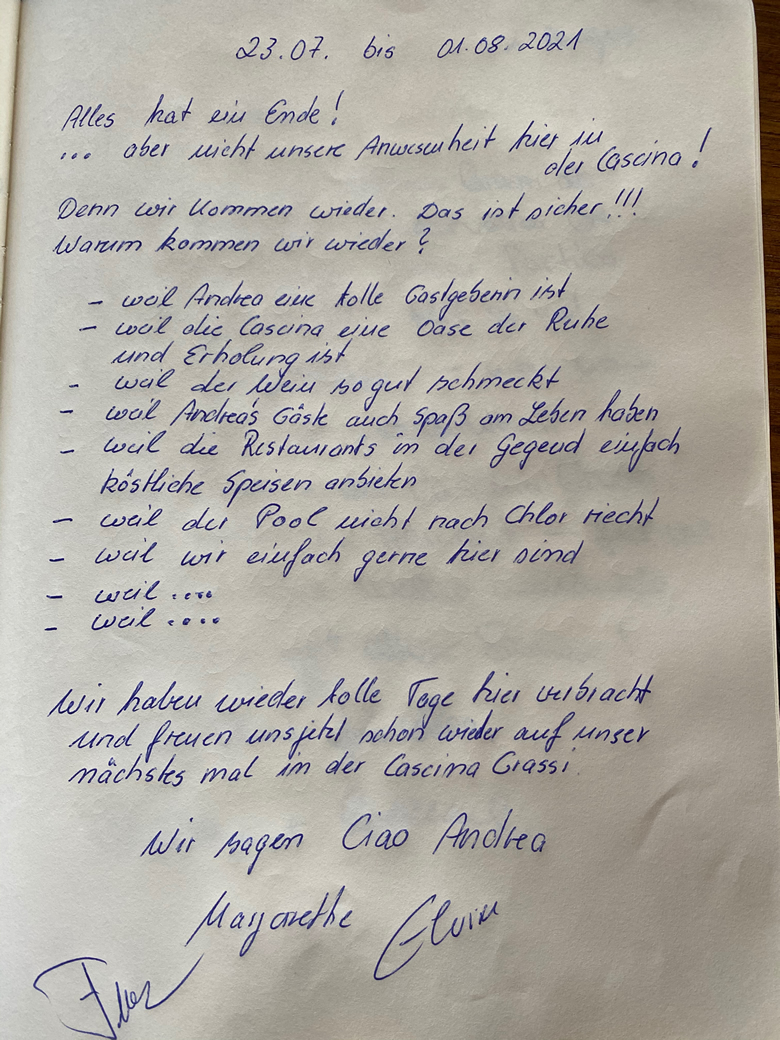 23.07. bis 01.08.2021
Alles hat ein Ende!
... aber nicht unsere Anwesenheit hier in
der Cascina!
Denn wir kommen wieder. Das ist sicher!!!
Warum kommen wir wieder?
- weil Andrea eine tolle Gastgeberin ist
- weil die Cascina eine Oase der Ruhe
und Erholung ist
- weil der Wein so gut schmeckt
- weil Andrea's Gäste auch Spaß am Leben haben
- weil die Restaurants in der Gegend einfach
köstliche Speisen anbieten
- weil der Pool nicht nach Chlor riecht
- weil wir einfach gerne hier sind
- weil ....
- weil ....
Wir haben wieder tolle Tage hier verbracht
und freuen uns jetzt schon wieder auf unser
nächstes mal in der Cascina Grassi.
Wir sagen Ciao Andrea
Margarethe Elvira